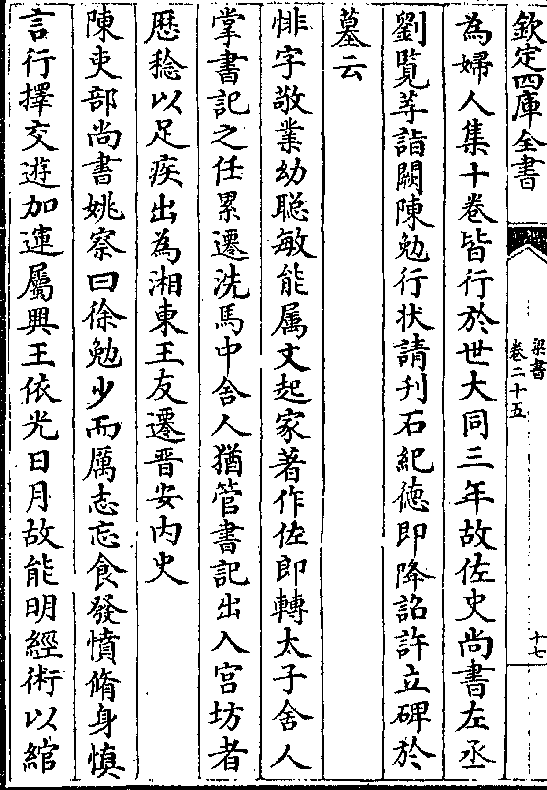 欽定四庫全書
梁書
卷二十五
十七
為婦人集十卷皆行於世大同三年故佐史尚書左丞
劉覧等詣闕陳勉行狀請刋石紀徳即降詔許立碑於
墓云
悱字敬業幼聦敏能属文起家著作佐郎轉太子舍人
掌書記之任累遷洗馬中舍人猶管書記出入宫坊者
歴稔以足疾出為湘東王友遷晉安内史
陳吏部尚書姚察曰徐勉少而厲志忘食發憤脩身慎
言行擇交遊加運屬興王依光日月故能明經術以綰